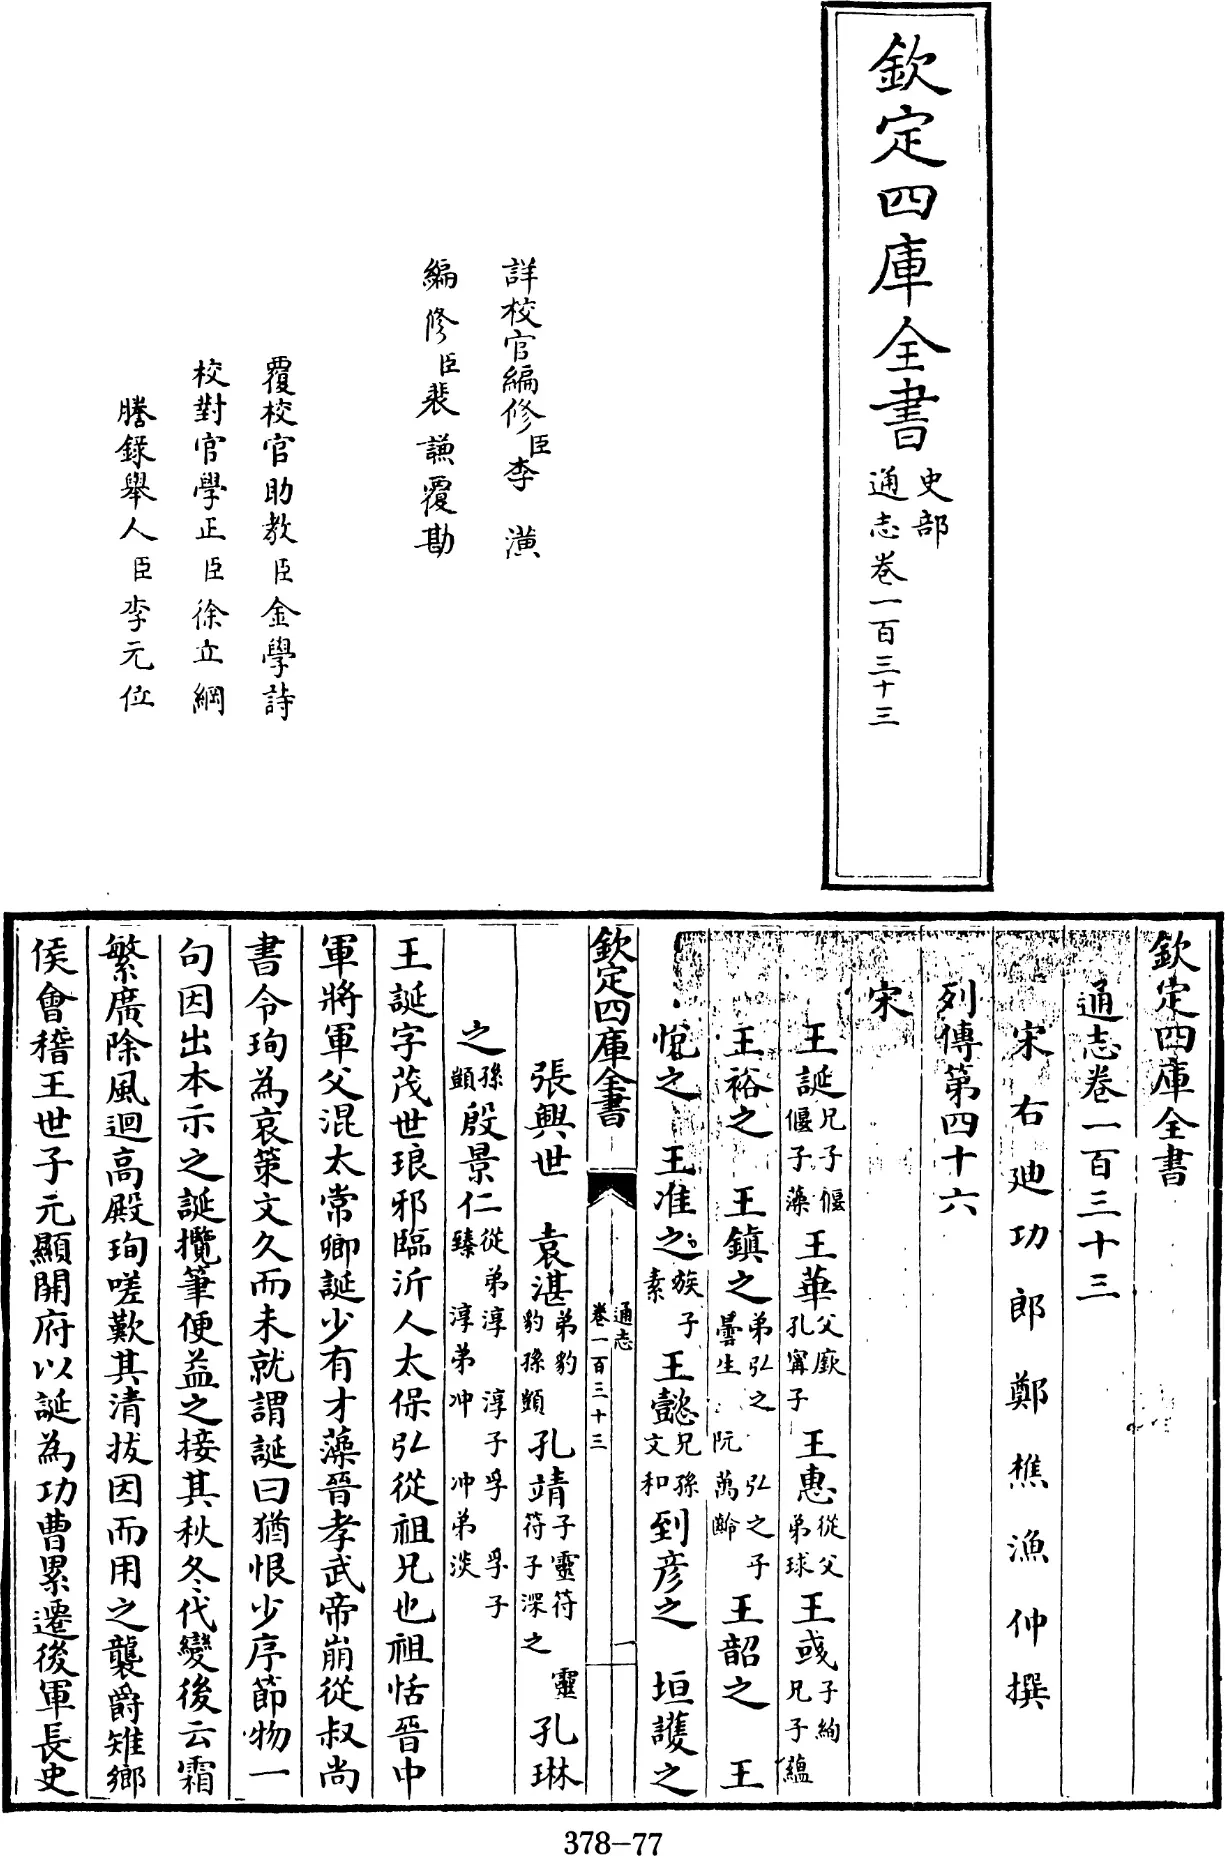 欽定四庫全書
史部
通志卷一百三十三
詳校官編修臣李潢
編修臣裴謙覆勘
覆校官助教臣金學詩
校對官學正臣徐立綱
謄錄舉人臣李元位
欽定四庫全書
通志卷一百三十三
宋右廸功郎鄭樵漁仲撰
列傳第四十六
宋
王誕兄子偃偃子藻 王華父廞孔甯子 王惠從父弟球 王彧子絢兄子蘊
王裕之 王鎮之弟弘之弘之子曇生阮萬齡 王韶之 王
悅之 王准之族子素 王懿兄孫文和 到彥之 垣護之
欽定四庫全書 通志卷一百三十三 一
張興世 袁湛弟豹豹孫顗 孔靖子靈符靈符子深之 孔琳
之孫顗 殷景仁從弟淳淳子孚孚子臻淳弟冲冲弟淡
王誕字茂世琅邪臨沂人太保弘從祖兄也祖恬晉中
軍將軍父混太常卿誕少有才藻晉孝武帝崩從叔尚
書令珣為哀策文久而未就謂誕曰猶恨少序節物一
句因出本示之誕攬筆便益之接其秋冬代變後云霜
繁廣除風迴高殿珣嗟歎其清拔因而用之襲爵雉鄉
侯會稽王世子元顯開府以誕為功曹累遷後軍長史
378-77